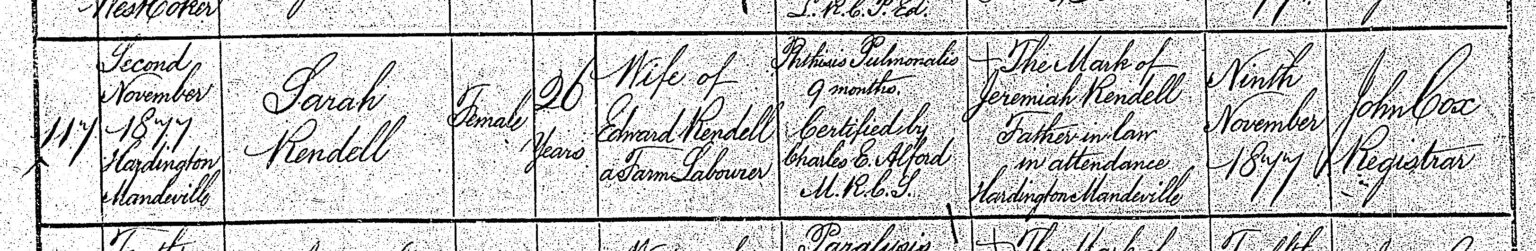 West Coker
L.R.C.P. Ed.
117
Second
November
1877
Hardington
Mandeville
Sarah
Rendell
Female
26
Years
Wife of
Edward Rendell
a Farm Labourer
Phthisis Pulmonalis
9 months.
Certified by
Charles E. Alford
M.R.C.S.
The Mark of
Jeremiah Rendell
Father in law
in attendance
Hardington Mandeville
Ninth
November
1877
John Cox
Registrar
Paralysis
The Mark of